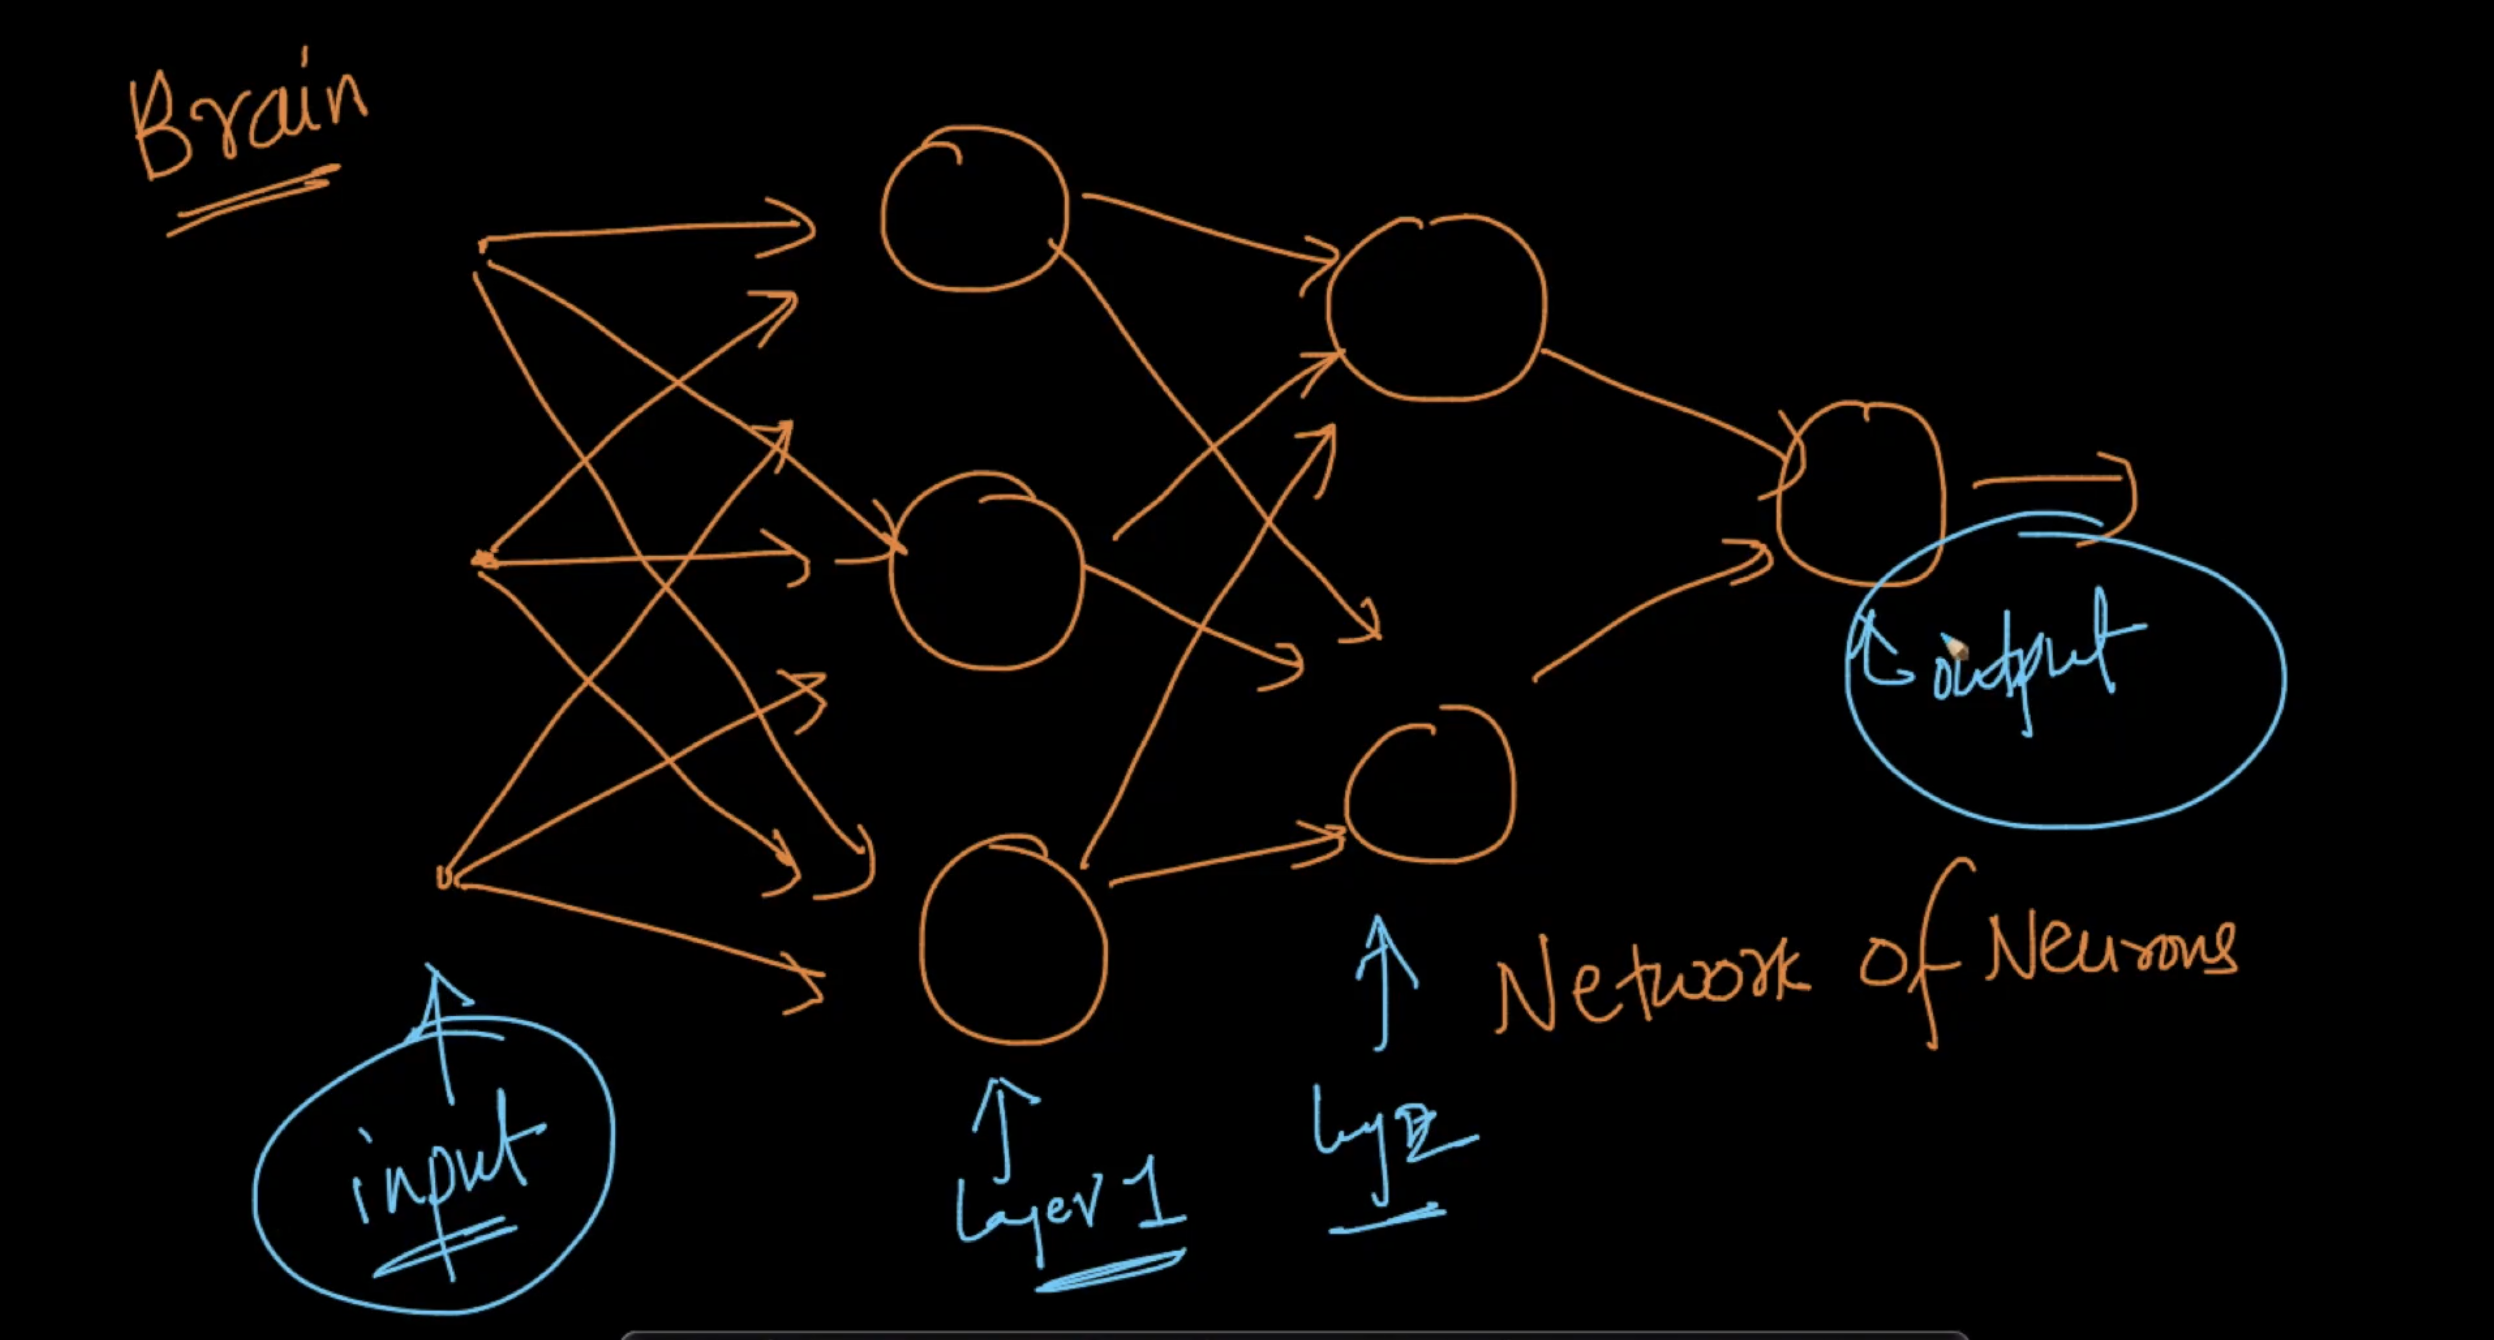 Brain
output
Network of Neurons
input
Layer 1